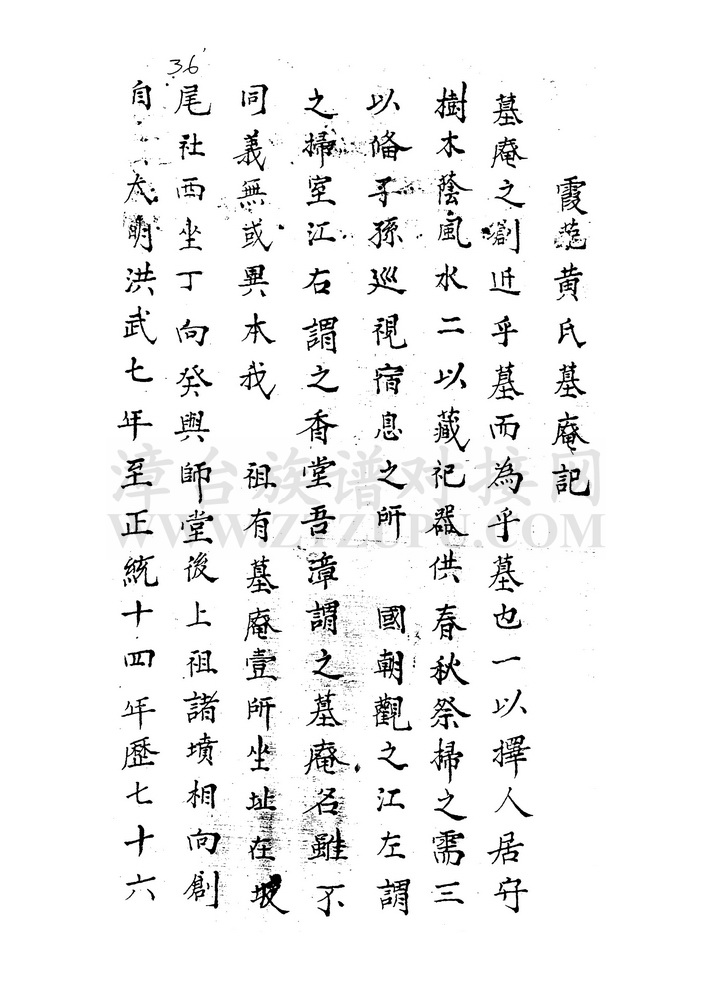 36
霞苑黄氏墓庵記
墓庵之創近乎墓而為乎墓也一以擇人居守
樹木蔭風水二以藏祀器供春秋祭掃之需三
以俻子孫巡視宿息之所 國朝觀之江左謂
之掃室江右謂之香堂吾漳謂之墓庵名雖不
同義無或異本我 祖有墓庵壹所坐址在坂
尾社西坐丁向癸與師堂後上祖諸墳相向創
自 大明洪武七年至正統十四年歷七十六
漳台族谱对接网
WWW.ZTZUPU.COM